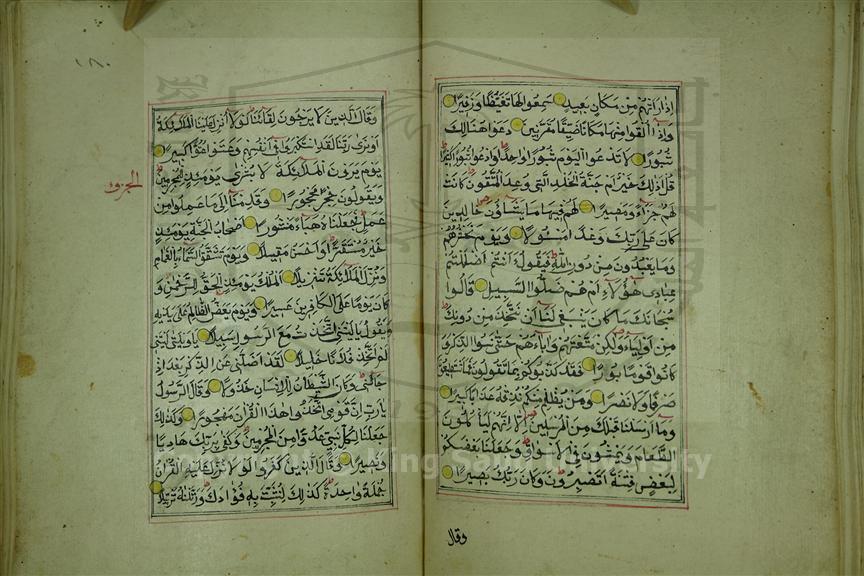 اذا رأتهم من مكان بعيد سمعوا لها تغيظا وزفيرا
واذا القوا منها مكانا ضيقا مقرنين دعوا هنالك
ثبورا لا تدعوا اليوم ثبورا واحدا وادعوا ثبورا كثيرا
قل اذلك خير ام جنة الخلد التي وعد المتقون كانت
لهم جزاء ومصيرا لهم فيها ما يشاؤن خالدين
كان على ربك وعدا مسئولا ويوم يحشرهم
وما يعبدون من دون الله فيقول ءانتم اضللتم
عبادى هؤلاء ام هم ضلوا السبيل قالوا
سبحانك ما كان ينبغى لنا ان نتخذ من دونك
من اولياء ولكن متعتهم واباءهم حتى نسوا الذكر و
كانوا قوما بورا فقد كذبوكم بما تقولون فما تستطيعون
صرفا ولا نصرا ومن يظلم منكم نذقه عذابا كبيرا
وما ارسلنا قبلك من المرسلين الا انهم ليأكلون
الطعام ويمشون فى الاسواق وجعلنا بعضكم
لبعض فتنة اتصبرون وكان ربك بصيرا
وقال
١٨٠
وقال الذين لا يرجون لقاءنا لولا انزل علينا الملائكة
او نرى ربنا لقد استكبروا فى انفسهم وعتوا عتوا كبيرا
يوم يرون الملائكة لا بشرى يومئذ للمجرمين
ويقولون حجرا محجورا وقدمنا الى ما عملوا من
عمل فجعلناه هباء منثورا اصحاب الجنة يومئذ
خير مستقرا واحسن مقيلا ويوم تشقق السماء بالغمام
ونزل الملائكة تنزيلا الملك يومئذ الحق للرحمن و
كان يوما على الكافرين عسيرا ويوم يعض الظالم على يديه
يقول يا ليتنى اتخذت مع الرسول سبيلا يا ويلتى ليتنى
لم اتخذ فلانا خليلا لقد اضلنى عن الذكر بعد اذ
جاءنى وكان الشيطان للانسان خذولا وقال الرسول
يا رب ان قومى اتخذوا هذا القرآن مهجورا وكذلك
جعلنا لكل نبى عدوا من المجرمين وكفى بربك هاديا
ونصيرا وقال الذين كفروا لولا نزل عليه القرآن
جملة واحدة كذلك لنثبت به فؤادك ورتلناه ترتيلا
King Saud University